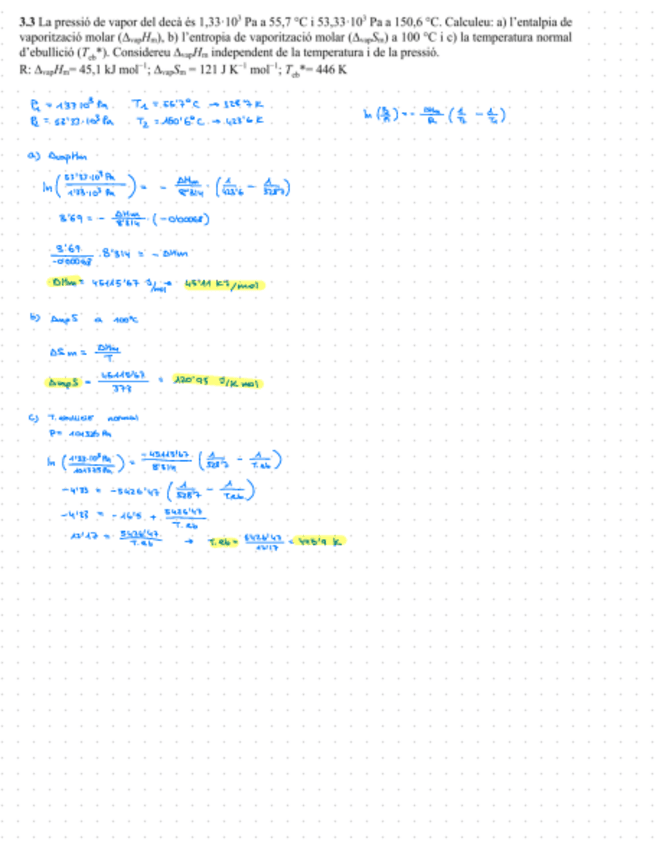 3.3 La pressió de vapor del decà és 1,33·10³ Pa a 55,7 °C i 53,33·10³ Pa a 150,6 °C. Calculeu: a) l'entalpia de
vaporització molar (ΔvapHm), b) l'entropia de vaporització molar (ΔvapSm) a 100 °C i c) la temperatura normal
d'ebullició (Teb*). Considereu ΔvapHm independent de la temperatura i de la pressió.
R: ΔvapHm= 45,1 kJ mol⁻¹; ΔvapSm = 121 J K⁻¹ mol⁻¹; Teb*= 446 K
P₁ = 1'33·10³ Pa T₁ = 55'7°C → 328'7 K
P₂ = 53'33·10³ Pa T₂ = 150'6°C → 423'6 K
ln (P₂/P₁) = - ΔHm/R (1/T₂ - 1/T₁)
a) ΔvapHm
ln (53'33·10³ Pa / 1'33·10³ Pa) = - ΔHm/8'314 · (1/423'6 - 1/328'7)
3'69 = - ΔHm/8'314 · (-0'00068)
3'69/-0'00068 · 8'314 = - ΔHm
ΔHm = 45115'67 J/mol → 45'11 kJ/mol
b) ΔvapS a 100°C
ΔSm = ΔHm/T
ΔvapS = 45115'67/373 = 120'95 J/K mol
c) T. ebullició normal
P = 101325 Pa
ln (1'33·10³ Pa / 101325 Pa) = -45115'67/8'314 (1/328'7 - 1/T.eb)
-4'33 = -5426'47 (1/328'7 - 1/T.eb)
-4'33 = -16'5 + 5426'47/T.eb
12'17 = 5426'47/T.eb → T.eb = 5426'47/12'17 = 445'9 K